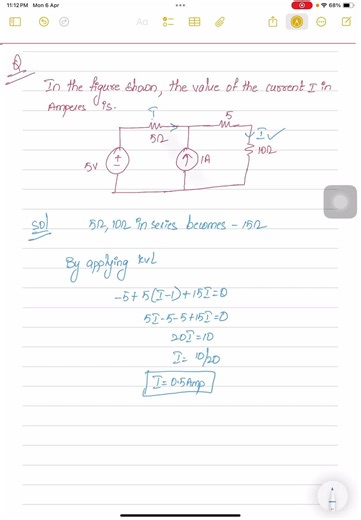 11:12 PM Mon 6 Apr
68%
Aa
Q
In the figure shown, the value of the current I in
Amperes is.
I
5
5Ω
I
10Ω
5V
1A
Sol
5Ω, 10Ω in series becomes - 15Ω
By applying KVL
-5+5(I-1)+15I=0
5I-5-5+15I=0
20I=10
I= 10/20
I=0.5Amp